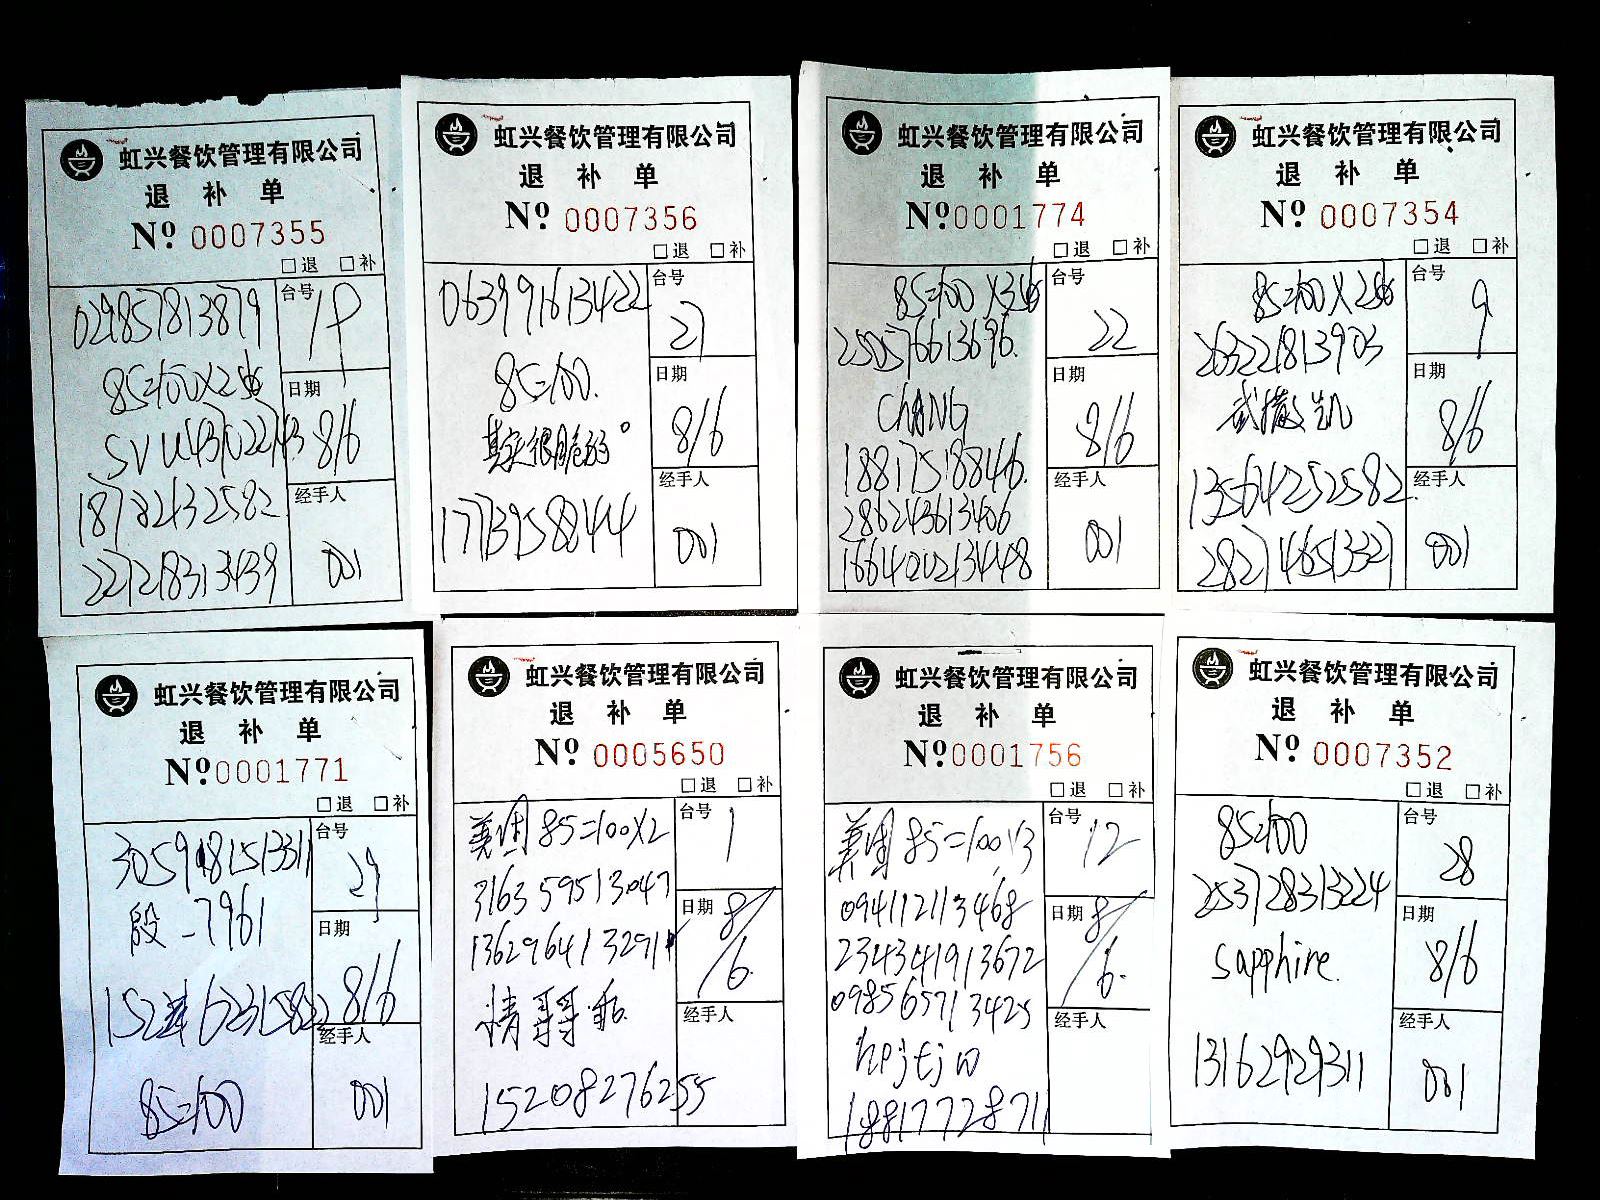 虹兴餐饮管理有限公司
退 补 单
Nº 0007355
□退 □补
029857813879
85=100×2
18782132582
221218313439
台号
19
日期
8/6
经手人
001
虹兴餐饮管理有限公司
退 补 单
Nº 0007356
□退 □补
063991613422
85=100.
其实很脆弱°
17739588444
台号
27
日期
8/6
经手人
001
虹兴餐饮管理有限公司
退 补 单
Nº 0001774
□退 □补
85=100 ×3
250576613696.
CHANG
18817518846.
286243613406
166402021 3448
台号
22
日期
8/6
经手人
001
虹兴餐饮管理有限公司
退 补 单
Nº 0007354
□退 □补
85=100 ×2
263221813903
武撒凯
13564252582.
282746513327
台号
9
日期
8/6
经手人
001
虹兴餐饮管理有限公司
退 补 单
Nº 0001771
□退 □补
段-7961
85=100
台号
29
日期
8/6
经手人
001
虹兴餐饮管理有限公司
退 补 单
Nº 0005650
□退 □补
美团 85=100×2
316359513047
136296413291
15208276255
台号
1
日期
8/6.
经手人
虹兴餐饮管理有限公司
退 补 单
Nº 0001756
□退 □补
美团 85=100×3
094112113468
234341913672
098565713425
hpjtjw
18817728711
台号
12
日期
8/6.
经手人
虹兴餐饮管理有限公司
退 补 单
Nº 0007352
□退 □补
85=100
253728313224
sapphire.
13162929311
台号
28
日期
8/6
经手人
001